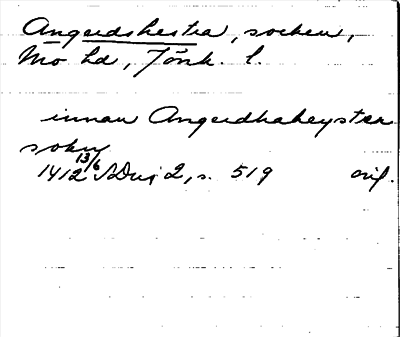 Angerdshestra, socken,
Mo hd, Jönk. l.
innan Angerdhaheystra
sokn
1412 13/6 SDns 2, s. 519 orig.